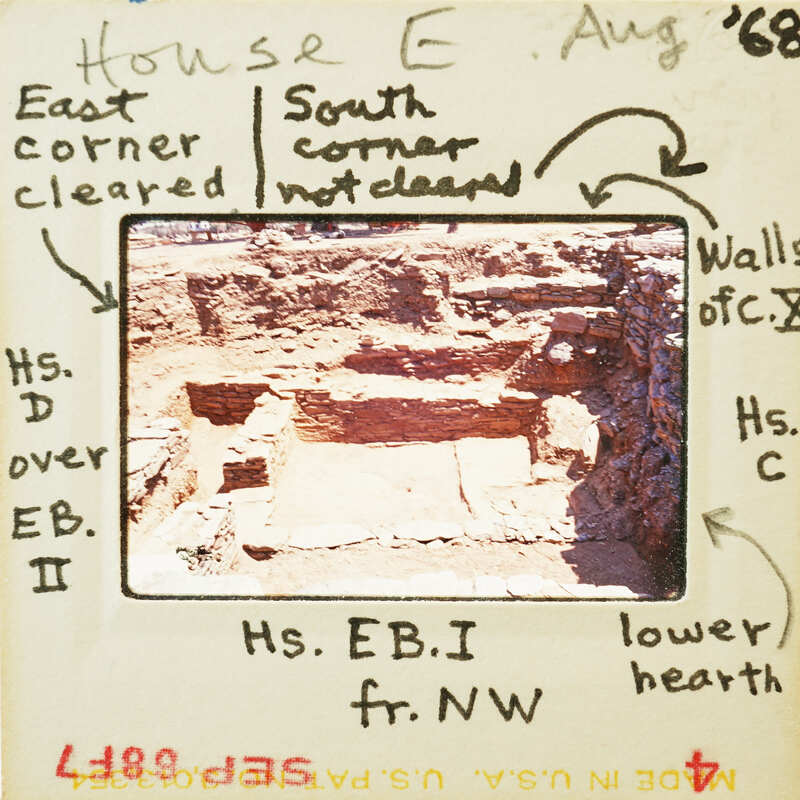 House E. Aug '68
East
corner
cleared
South
corner
not cleared
Walls
of C. X
Hs.
D
over
EB.
II
Hs.
C
Hs. EB. I
fr. NW
lower
hearth
SEP 68F7
4
MADE IN U.S.A. U.S. PAT. NO.